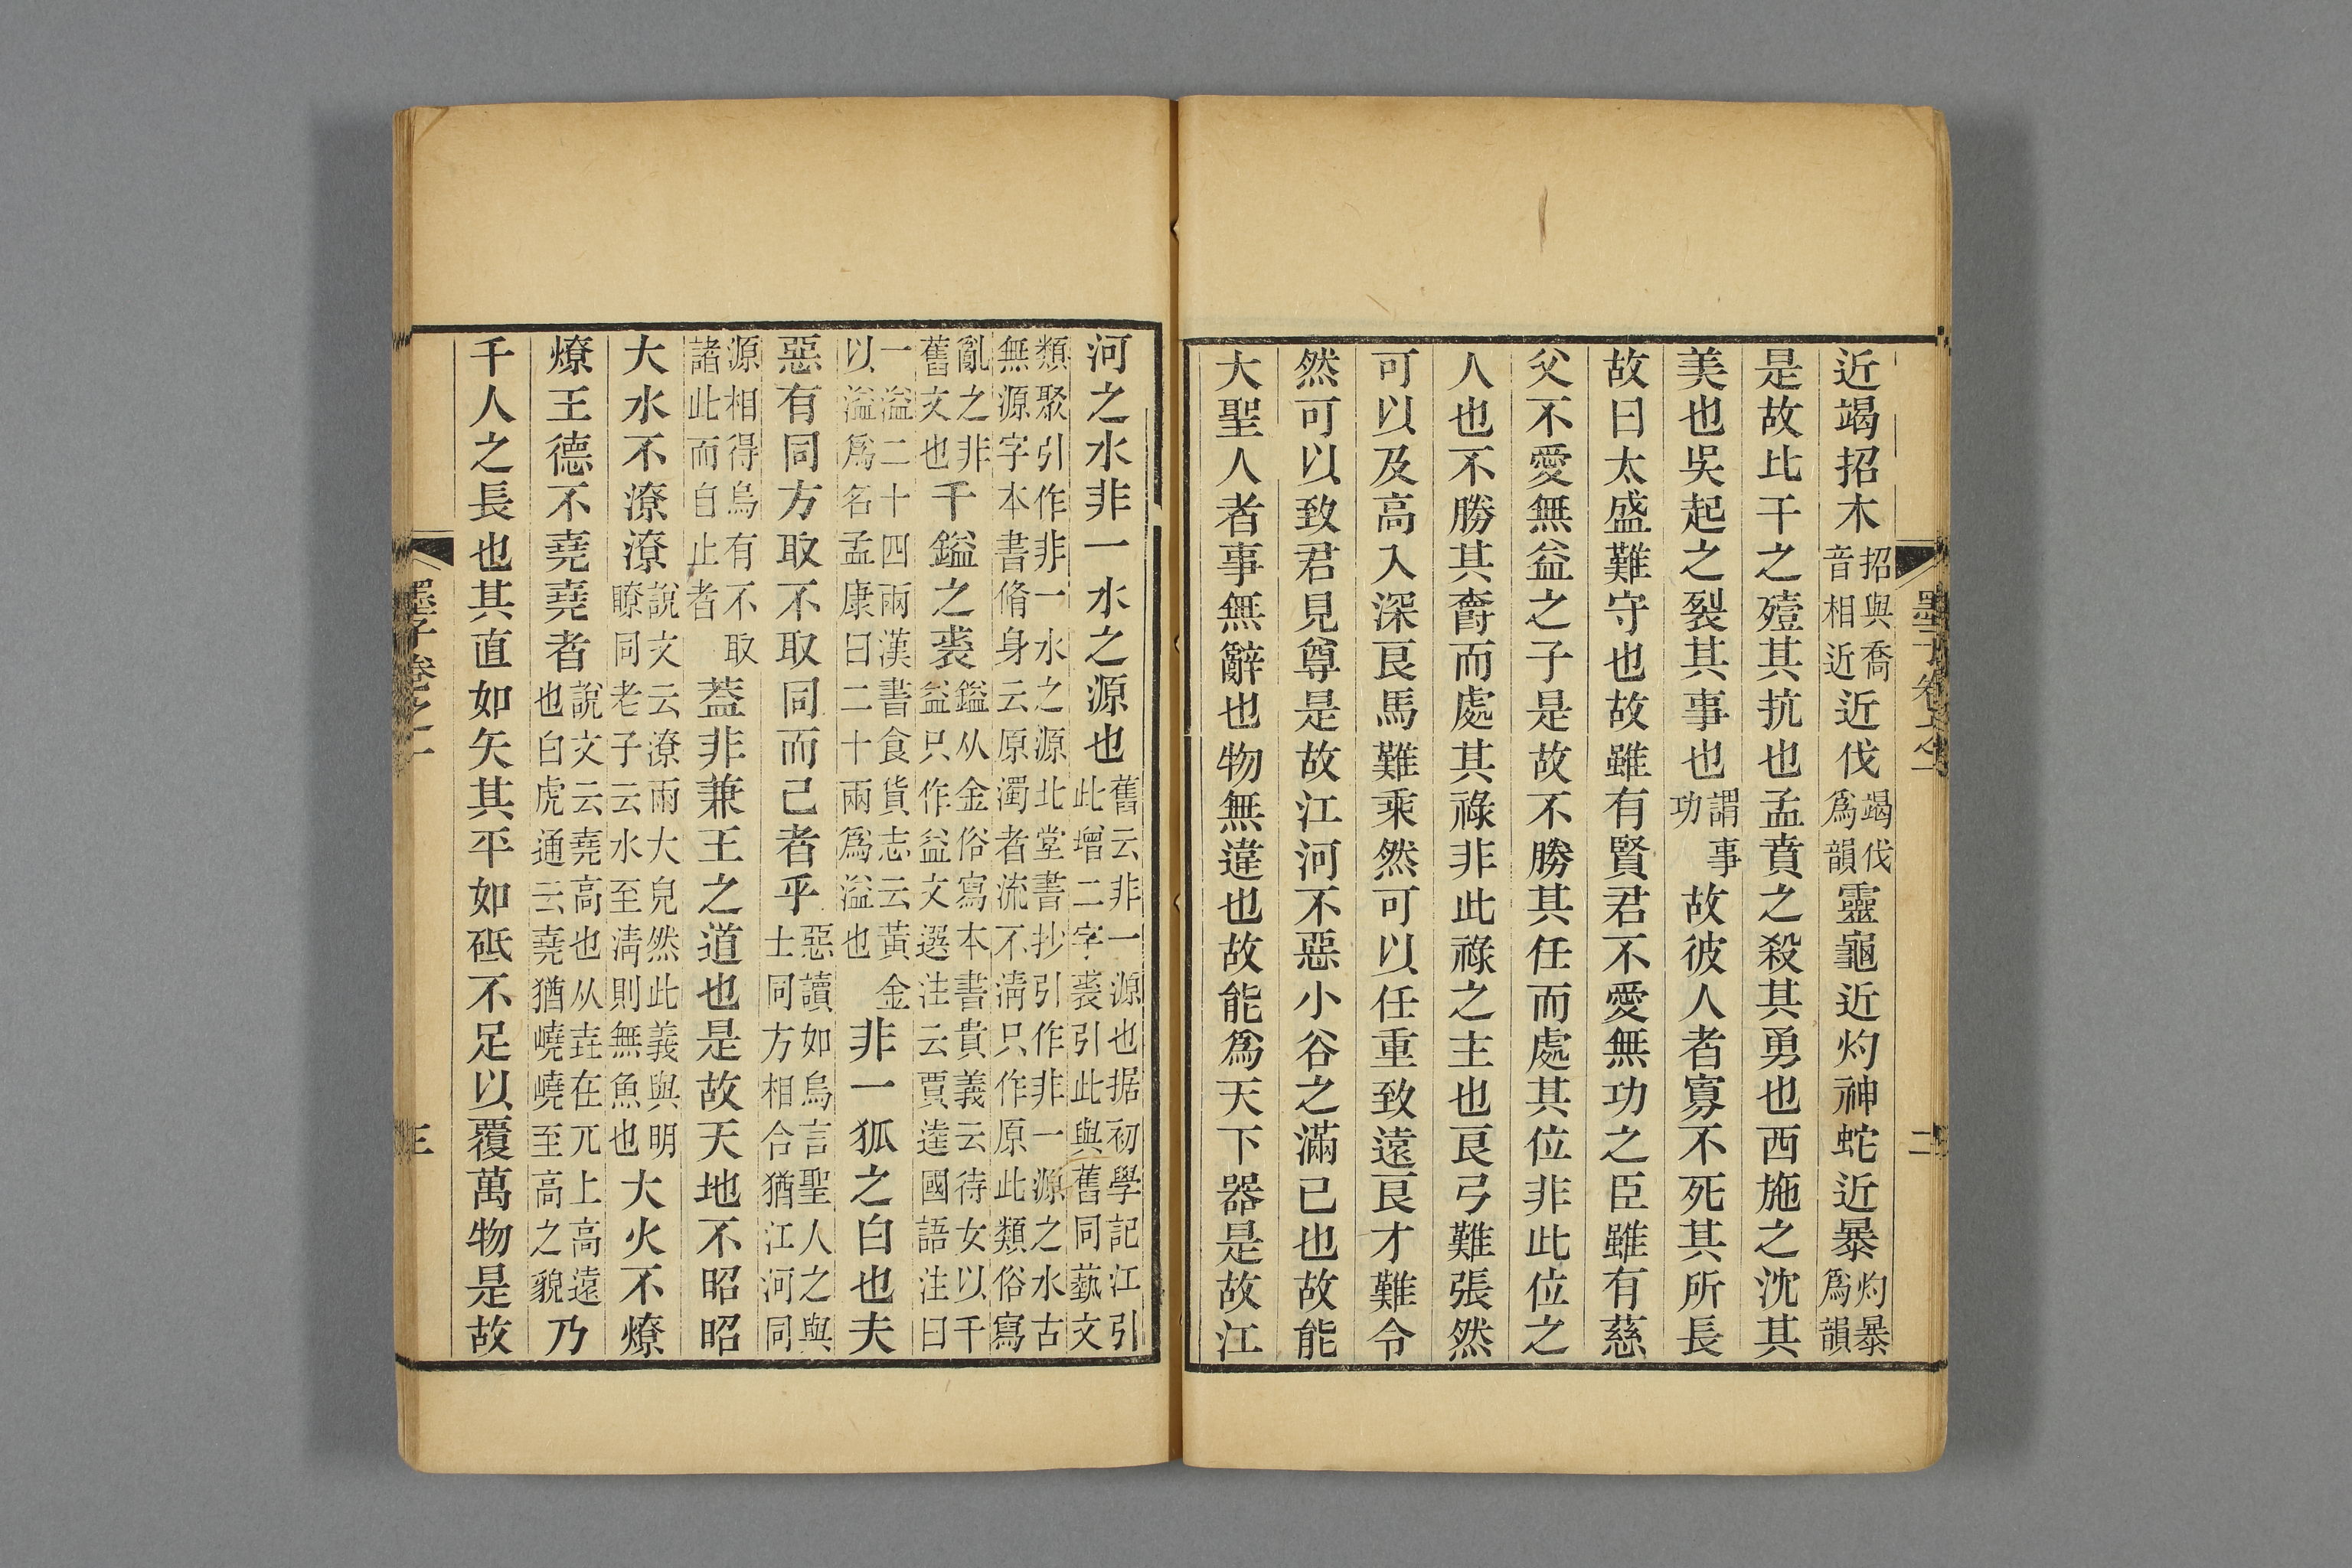 近竭招木招與喬音相近近伐竭伐爲韻靈龜近灼神蛇近暴灼暴爲韻
是故比干之殪其抗也孟賁之殺其勇也西施之沈其
美也吳起之裂其事也謂事功故彼人者寡不死其所長
故曰太盛難守也故雖有賢君不愛無功之臣雖有慈
父不愛無益之子是故不勝其任而處其位非此位之
人也不勝其爵而處其祿非此祿之主也良弓難張然
可以及高入深良馬難乘然可以任重致遠良才難令
然可以致君見尊是故江河不惡小谷之滿已也故能
大聖人者事無辭也物無違也故能爲天下器是故江
河之水非一水之源也舊云非一源也据初學記江引此增二字裘引此與舊同藝文
類聚引作非一水之源北堂書抄引作非一源之水古無源字本書脩身云原濁者流不清只作原此類俗寫
亂之非舊文也千鎰之裘鎰从金俗寫本書貴義云待女以千益只作益文選注云賈逵國語注曰
一溢二十四兩漢書食貨志云黃金以溢爲名孟康曰二十兩爲溢也非一狐之白也夫
惡有同方取不取同而己者乎惡讀如烏言聖人之與士同方相合猶江河同
源相得烏有不取諸此而自止者葢非兼王之道也是故天地不昭昭
大水不潦潦說文云潦雨大皃然此義與明瞭同老子云水至清則無魚也大火不燎
燎王德不堯堯者說文云堯高也从垚在兀上高遠也白虎通云堯猶嶢嶢至高之貌乃
千人之長也其直如矢其平如砥不足以覆萬物是故
墨子卷之一
二
墨子卷之一
三